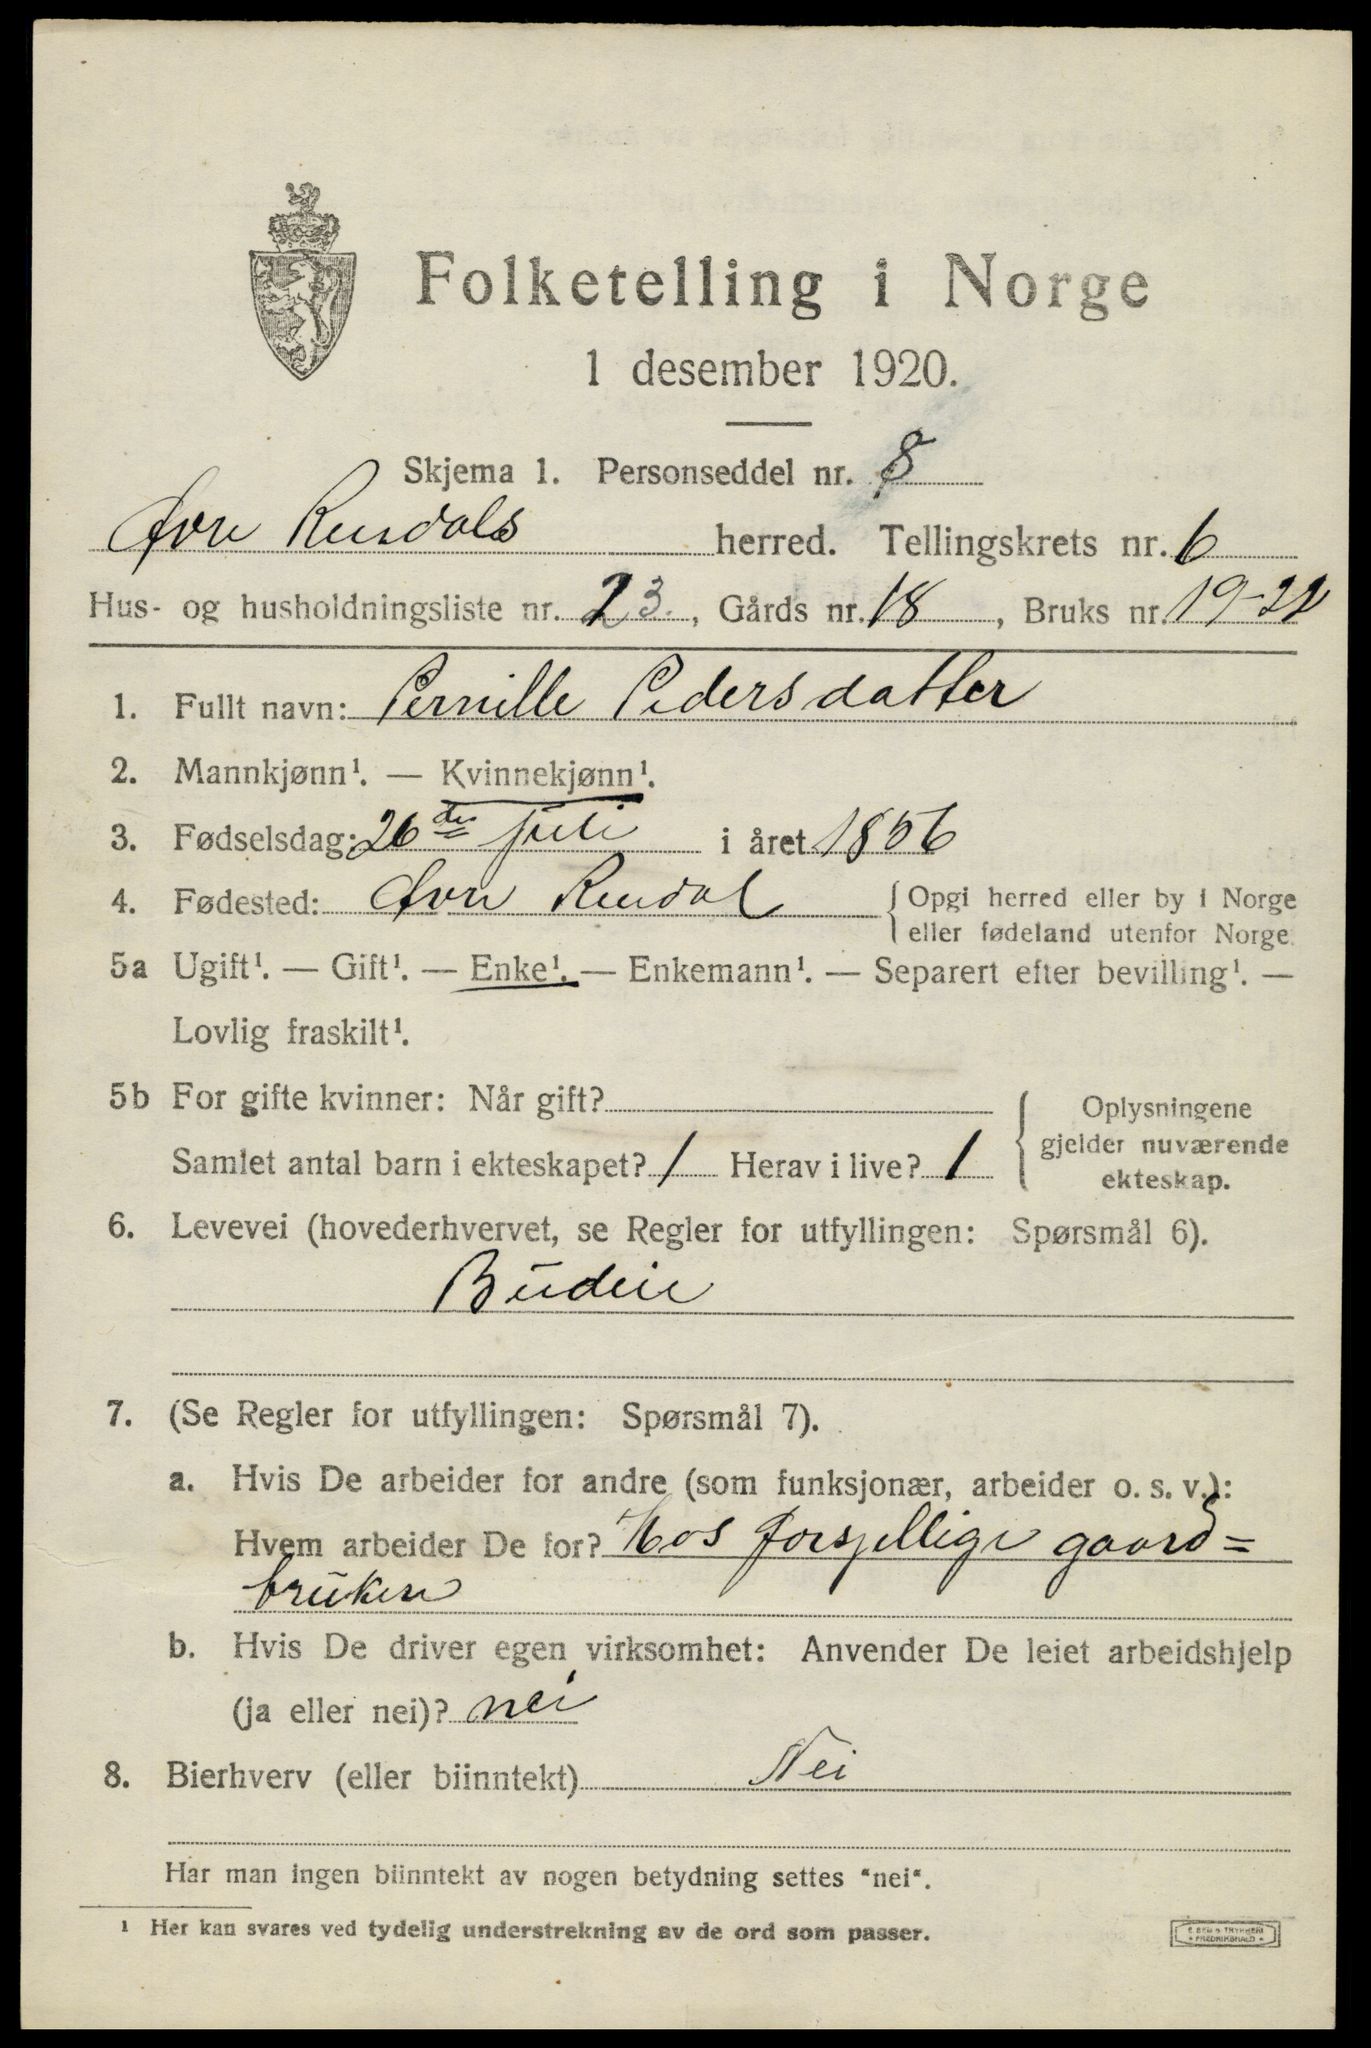 Folketelling i Norge
1 desember 1920.
Skjema 1. Personseddel nr. 8
Øvre Rendals herred. Tellingskrets nr. 6
Hus- og husholdningsliste nr. 23., Gårds nr. 18, Bruks nr. 19-22
1. Fullt navn: Pernille Pedersdatter
2. Mannkjønn¹. — Kvinnekjønn¹.
3. Fødselsdag: 26de juli i året 1856
4. Fødested: Øvre Rendal { Opgi herred eller by i Norge
eller fødeland utenfor Norge.
5a Ugift¹. — Gift¹. — Enke¹. — Enkemann¹. — Separert efter bevilling¹. —
Lovlig fraskilt¹.
5b For gifte kvinner: Når gift? { Oplysningene
gjelder nuværende
Samlet antal barn i ekteskapet? 1 Herav i live? 1
ekteskap.
6. Levevei (hovederhvervet, se Regler for utfyllingen: Spørsmål 6).
Budeie
7. (Se Regler for utfyllingen: Spørsmål 7).
a. Hvis De arbeider for andre (som funksjonær, arbeider o. s. v.):
Hvem arbeider De for? Hos forsjellige gaard=
brukere
b. Hvis De driver egen virksomhet: Anvender De leiet arbeidshjelp
(ja eller nei)? nei
8. Bierhverv (eller biinntekt) Nei
Har man ingen biinntekt av nogen betydning settes "nei".
¹ Her kan svares ved tydelig understrekning av de ord som passer.